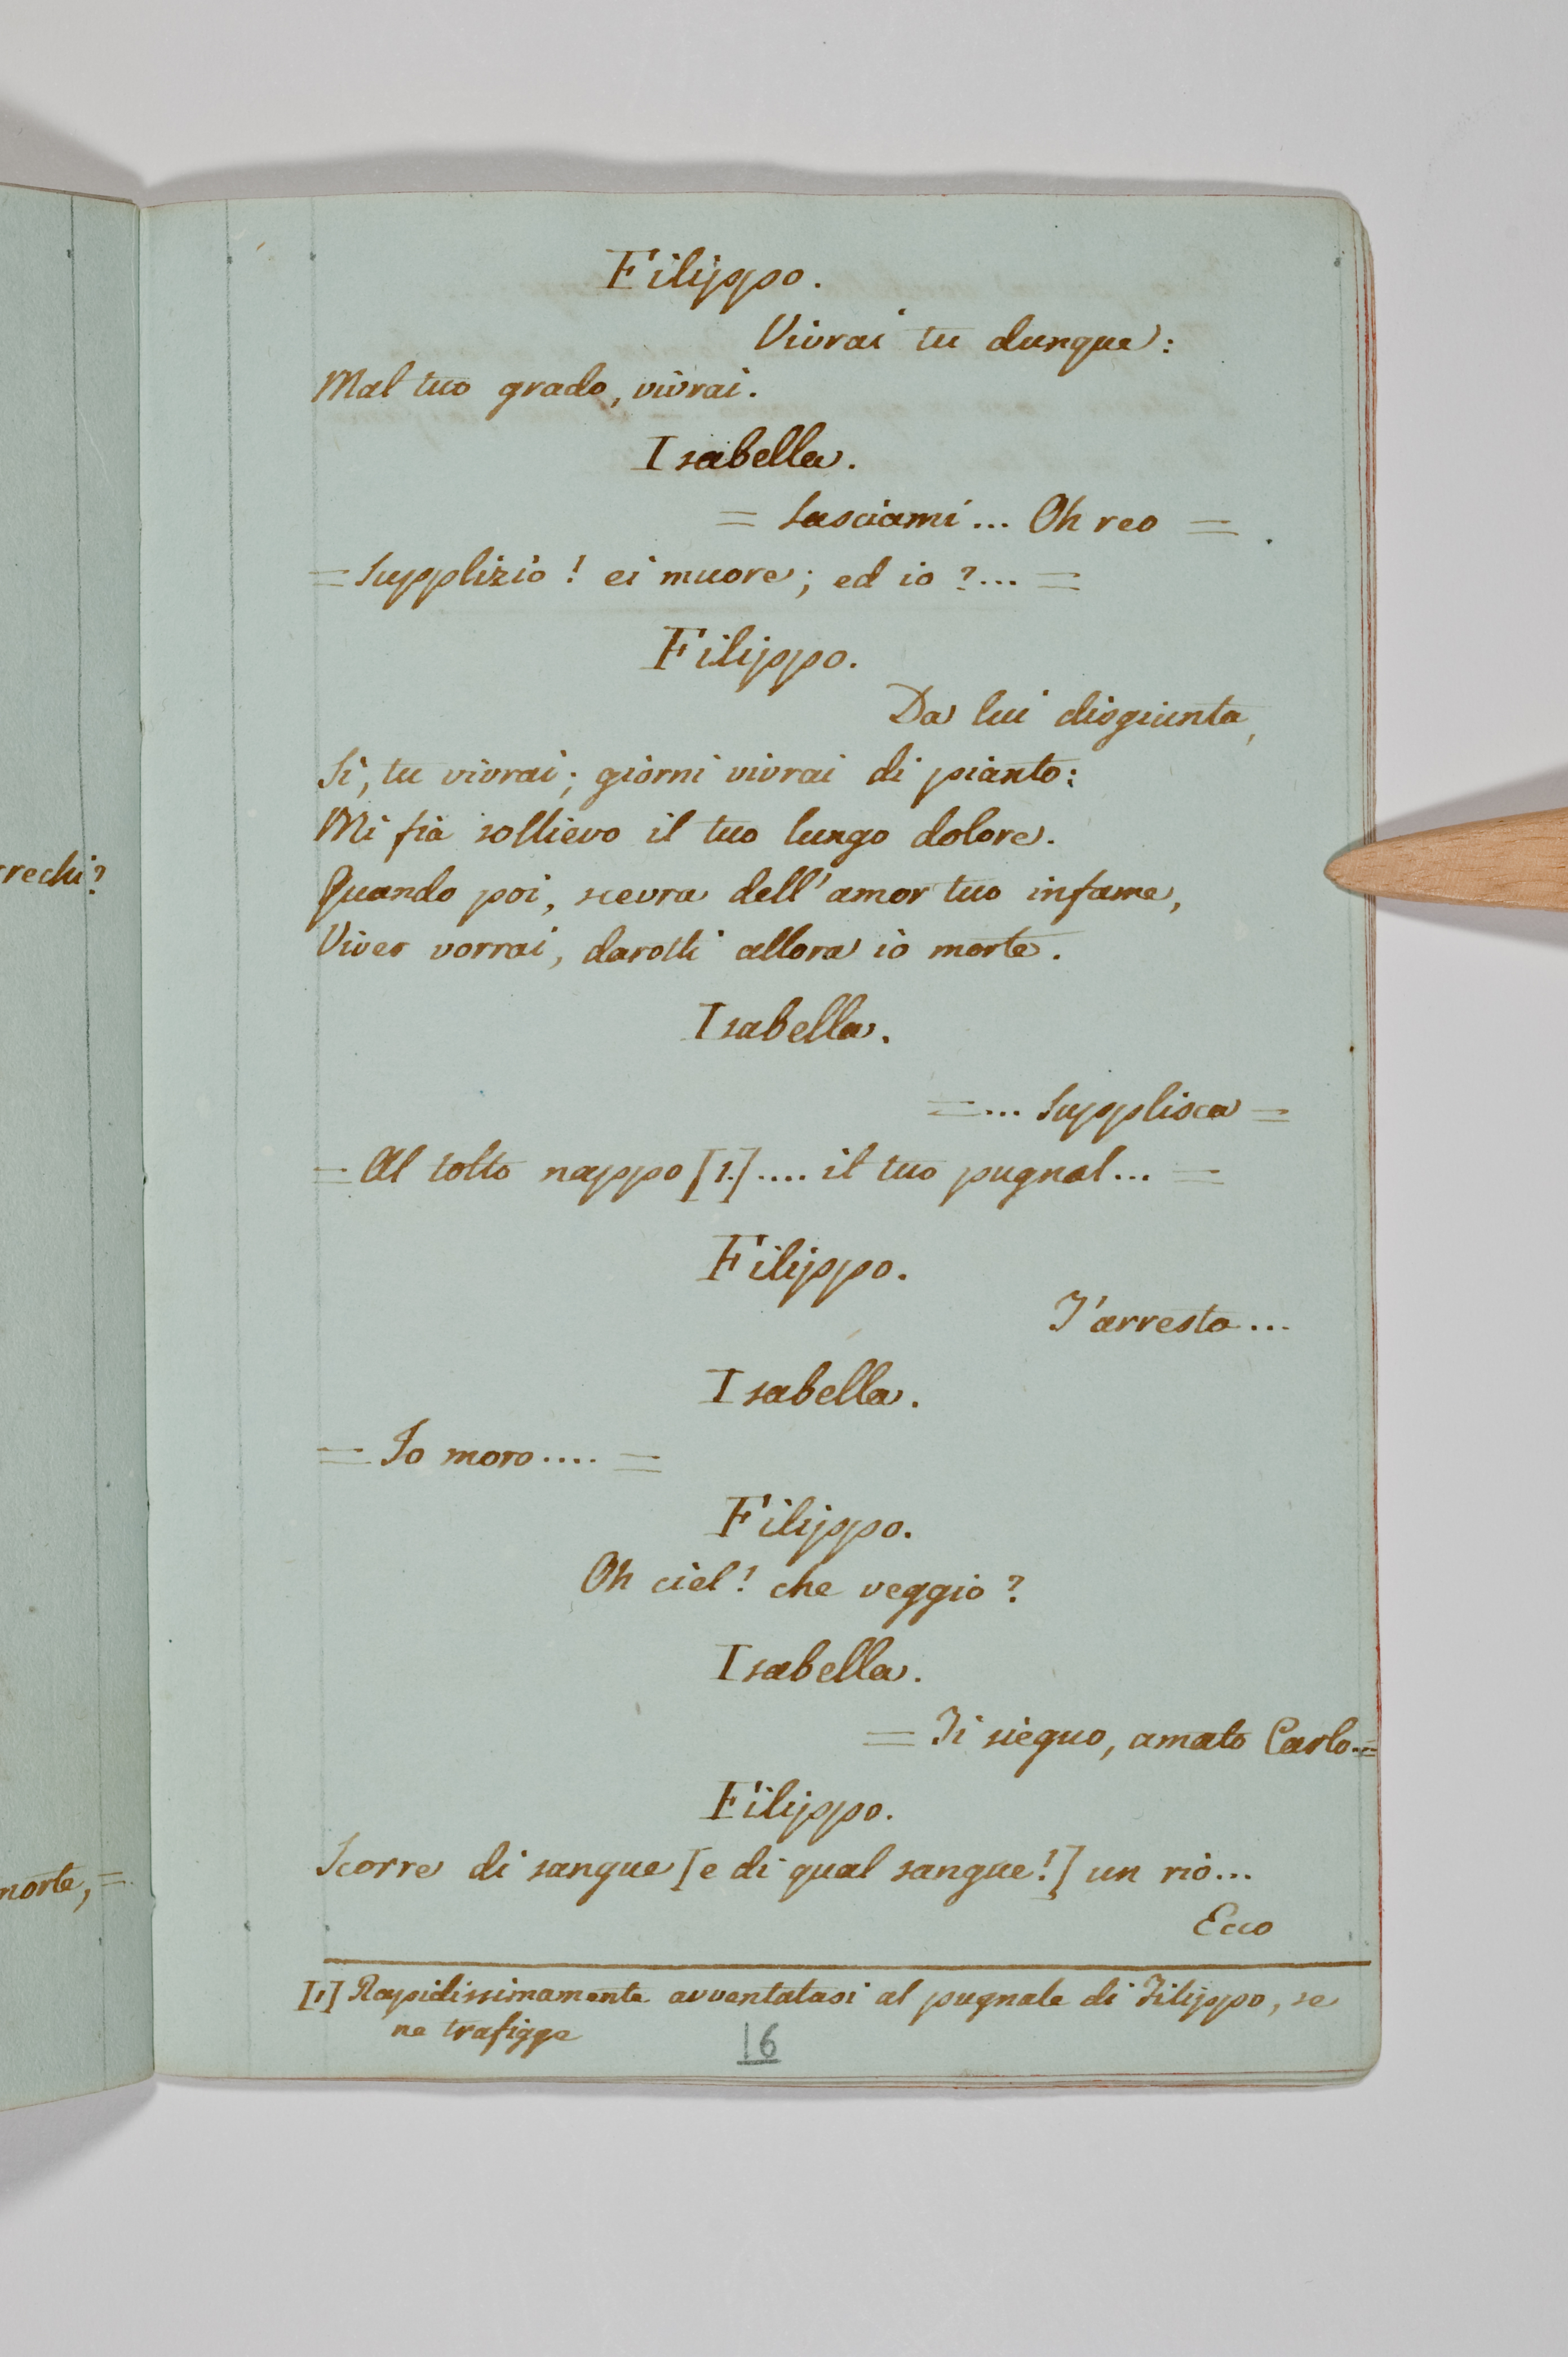 Filippo.
Vivrai tu dunque:
Mal tuo grado, vivrai.
Isabella.
= Lasciami... Oh reo =
= Supplizio! ei muore; ed io?... =
Filippo.
Da lui disgiunta,
Sì, tu vivrai; giorni vivrai di pianto:
Mi fia sollievo il tuo lungo dolore.
Quando poi, scevra dell'amor tuo infame,
Viver vorrai, darotti allora io morte.
Isabella.
=... Supplisca =
= Al tolto nappo [1.].... il tuo pugnal... =
Filippo.
T'arresta...
Isabella.
= Io moro.... =
Filippo.
Oh ciel! che veggio?
Isabella.
= Ti sieguo, amato Carlo.=
Filippo.
Scorre di sangue [e di qual sangue!] un rio...
Ecco
[1] Rapidissimamente avventatasi al pugnale di Filippo, se
ne trafigge
16
rrechi?
morte, =